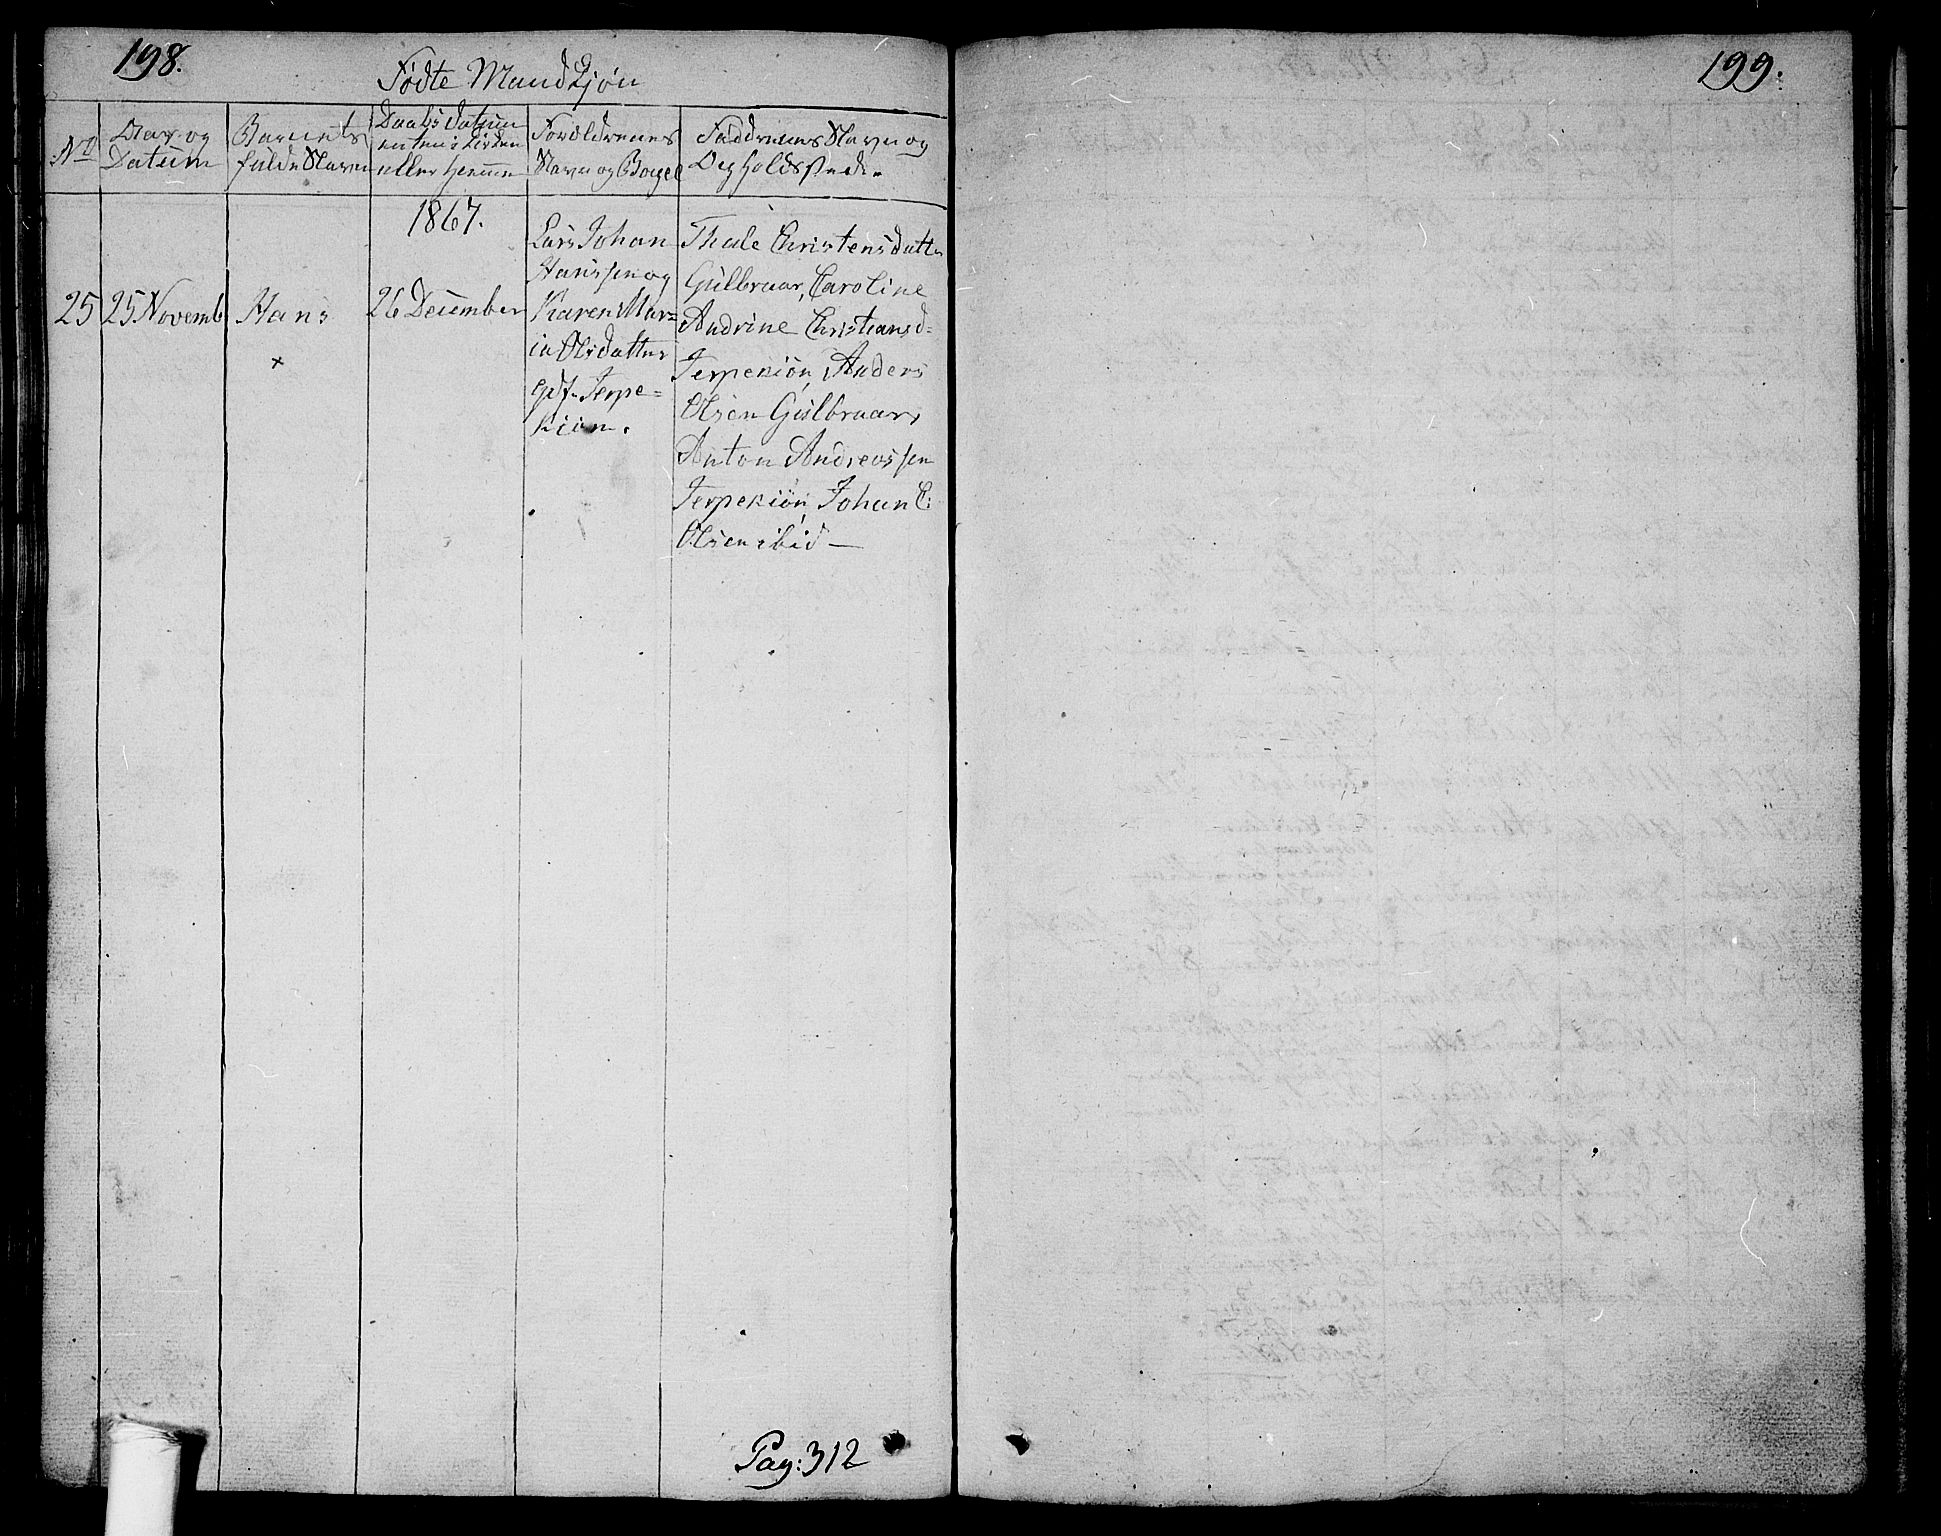 198.
Fødte Mandkjøn
No
Dag og
Datum
Barnets
fulde Navn
Daabs Datum
enten i Kirken
eller hjemme
Forældrenes
Navn og Bopel
Faddernes Navn og
Opholdssted.
1867.
25
25 Novemb
Hans
+
26 December
Lars Johan
Hanssen og
Karen Mar=
ia Olsdatter
Terpe=
kiøn.
Thale Christensdatter
Gulbraar, Caroline
Andrine Christiansd=
Terpekiøn, Anders
Olsen Gulbraar,
Anton Andreassen
Terpekiøn, Johan C:
Olsen ibid —
Pag: 312
199.